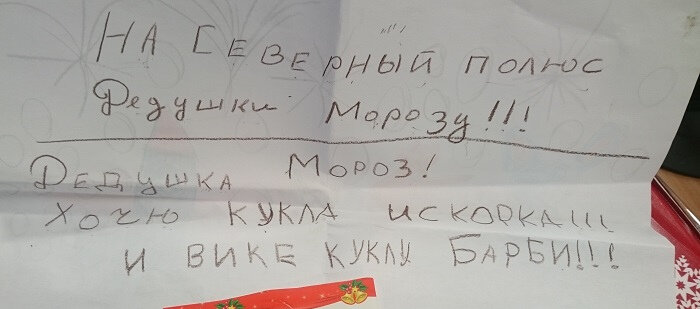 НА СЕВЕРНЫЙ ПОЛЮС
Дедушки Морозу!!!
ДЕДУШКА МОРОЗ!
ХОЧЮ КУКЛА ИСКОРКА!!!
И ВИКЕ КУКЛУ БАРБИ!!!